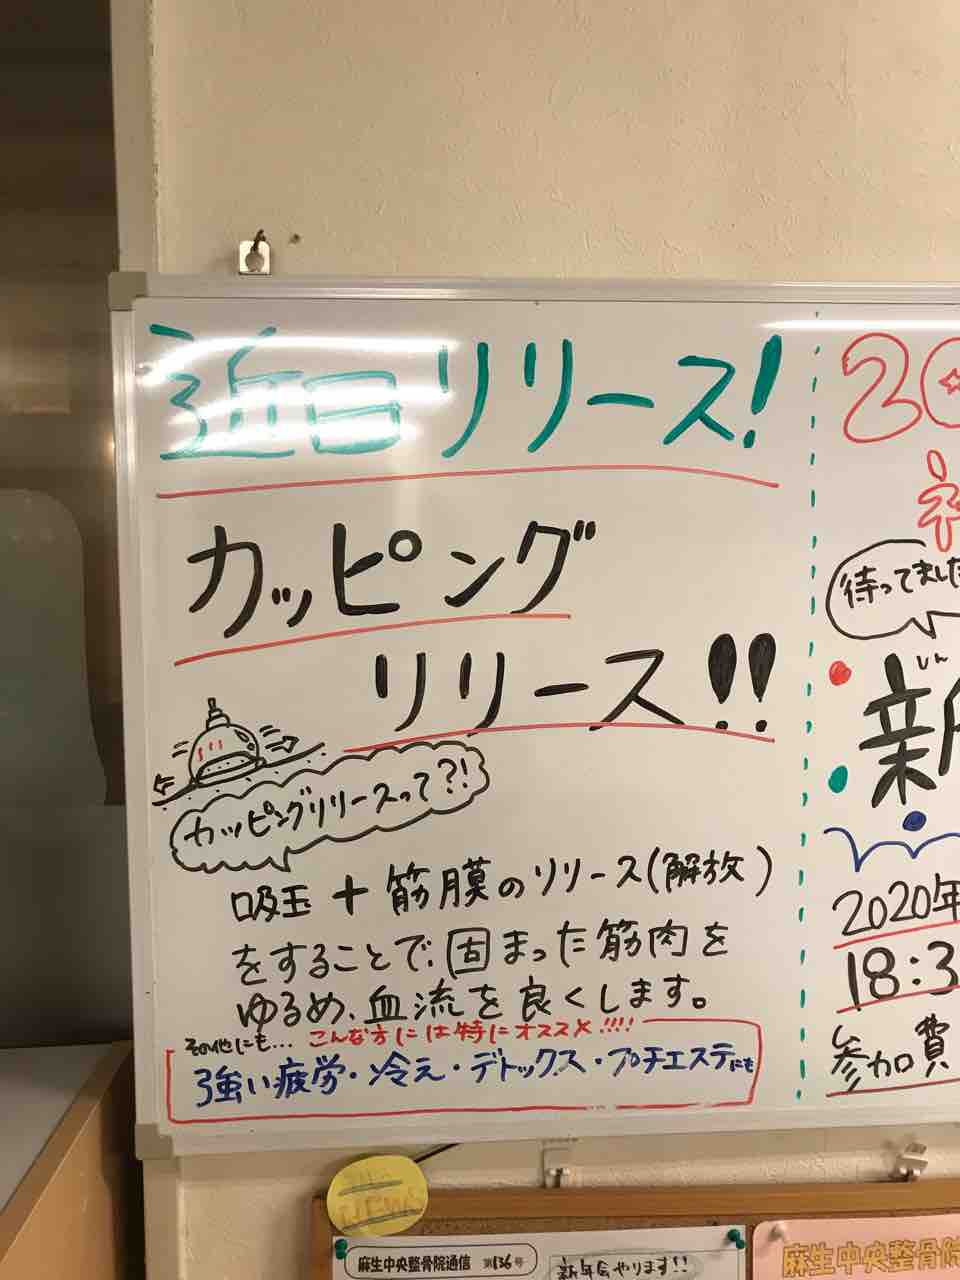 近日リリース!
カッピング
リリース!!
カッピングリリースって?!
吸玉+筋膜のリリース(解放)
をすることで、固まった筋肉を
ゆるめ、血流を良くします。
その他にも… こんな方には特にオススメ!!!!
強い疲労・冷え・デトックス・プチエステにも
20
待ってました
しん
新
2020年
18:3
参加費
麻生中央整骨院通信 第136号
新年会やります!!
麻生中央整骨院